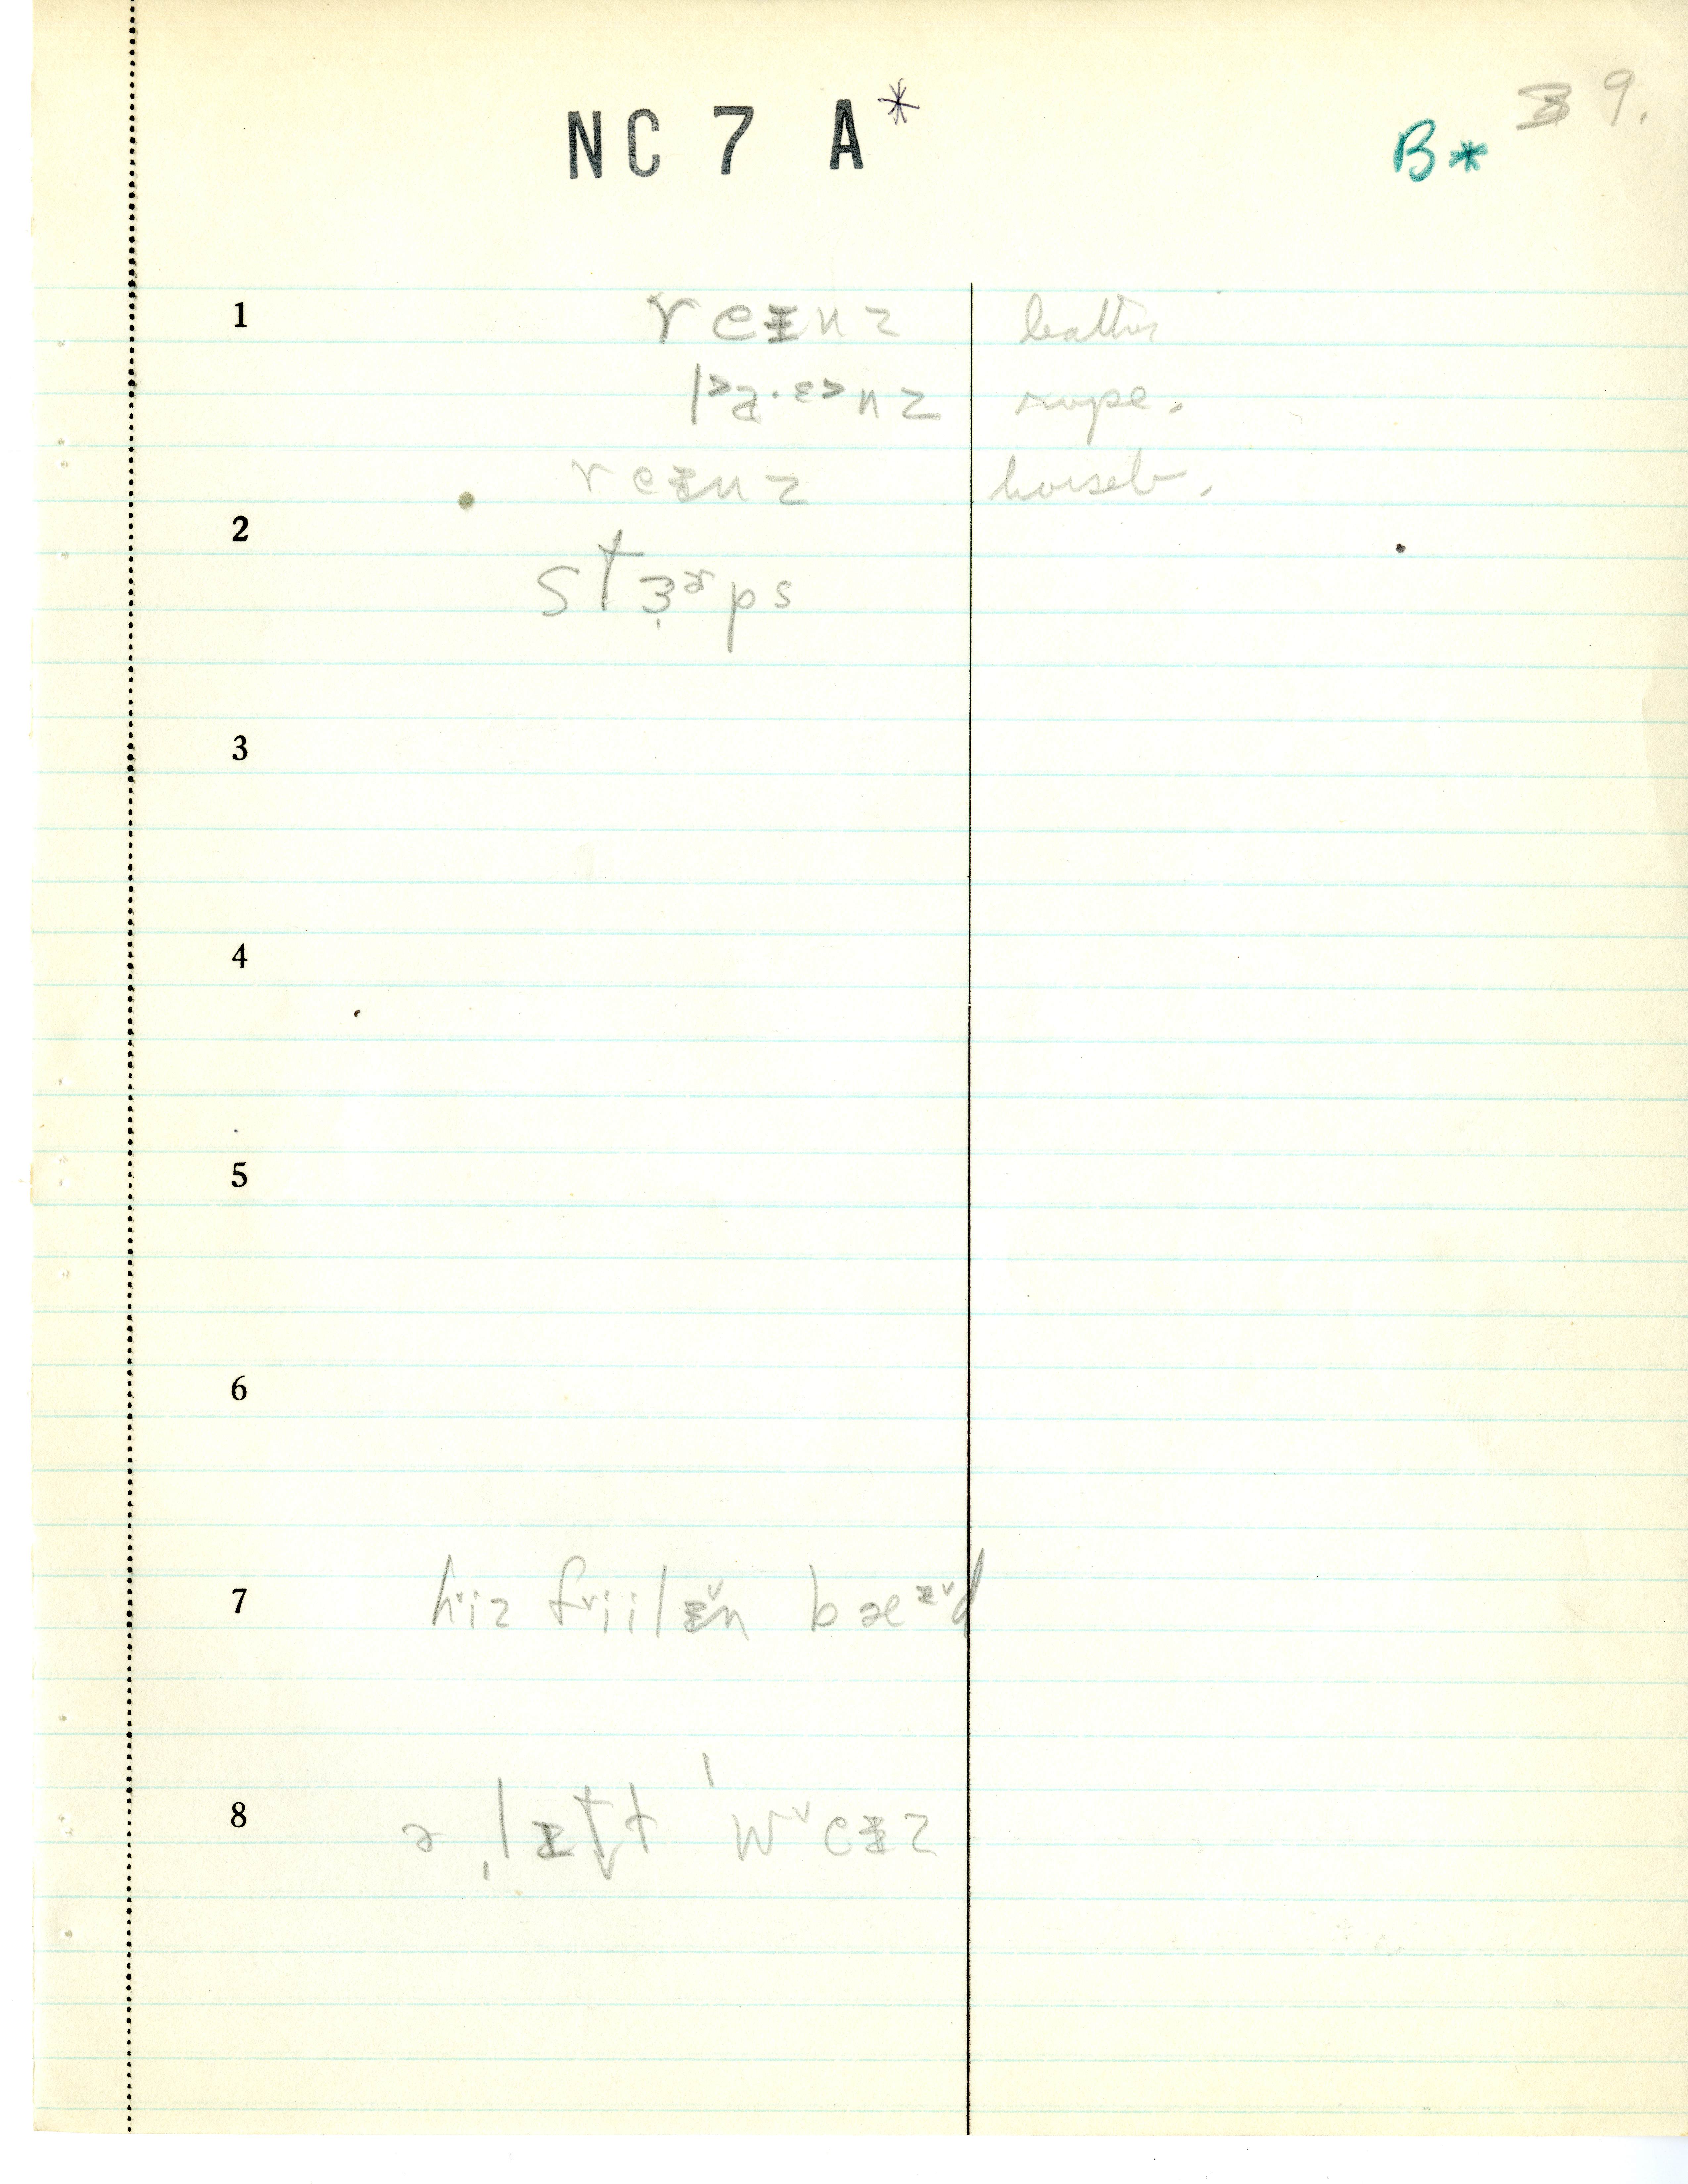 NC 7 A*
B* 39.
1 reᵻnz leather
laˑɛnz rope.
reᵻnz horseb.
2 stɜɚps
3
4
5
6
7 hiz friilᵻn bæᵻd
8 ə ˌlᵻft ˈweᵻz